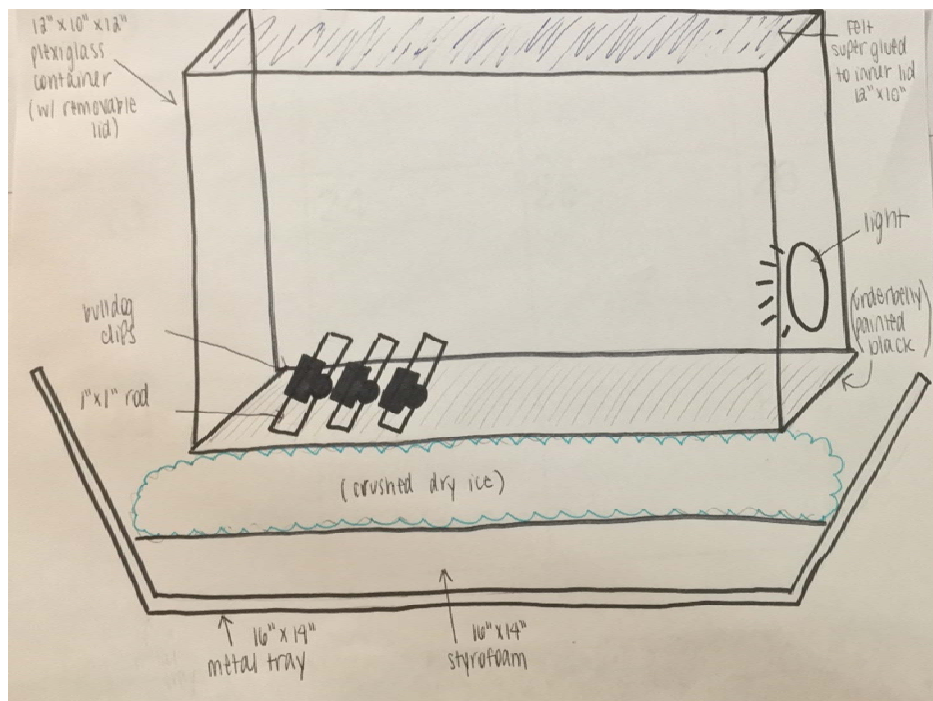 12" x 10" x 12"
plexiglass
container
(w/ removable
lid)
felt
super glued
to inner lid
12" x 10"
light
(underbelly)
painted
black
bulldog
clips
1" x 1" rod
(crushed dry ice)
16" x 14"
metal tray
16" x 14"
styrofoam